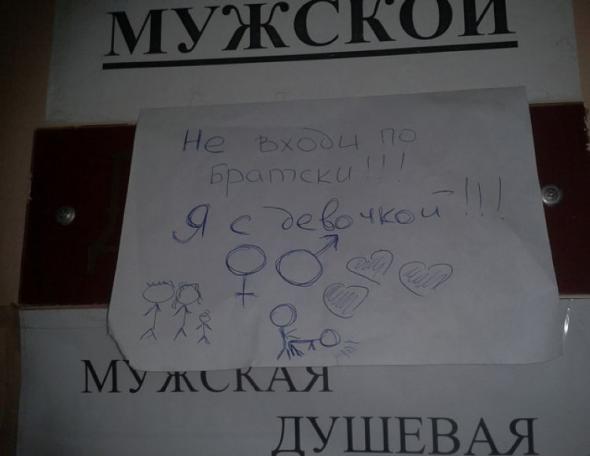 МУЖСКОЙ
Не входи по
Братски!!!
Я с девочкой!!!
МУЖСКАЯ
ДУШЕВАЯ